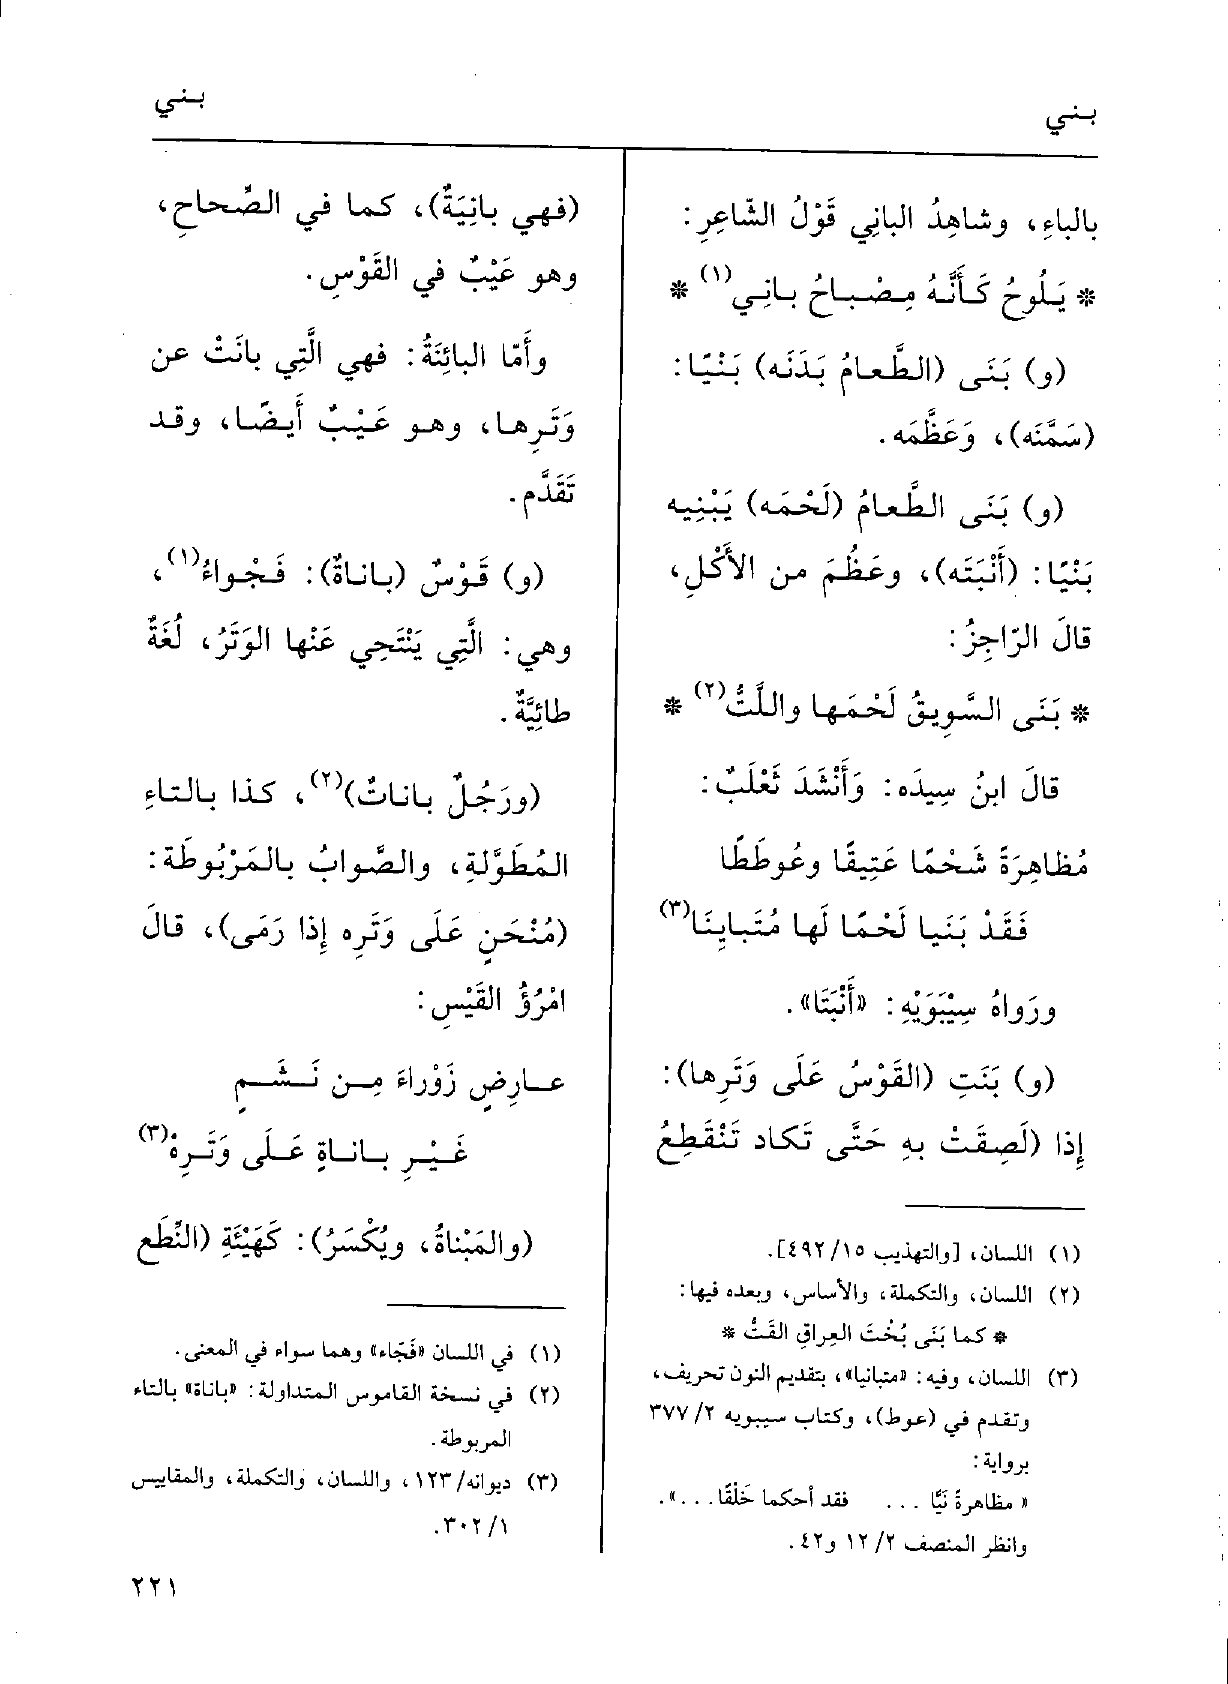 بـني
بـني
بالباءِ، وشاهِدُ الباني قَوْلُ الشّاعِرِ:
* يَلُوحُ كَأَنَّهُ مِصْباحُ بانِي(١) *
(و) بَنَى (الطَّعامُ بَدَنَه) بَنْيًا:
(سَمَّنَه)، وَعَظَّمَه.
(و) بَنَى الطَّعامُ (لَحْمَه) يَبْنِيه
بَنْيًا: (أَنْبَتَه)، وعَظُمَ من الأَكْلِ،
قالَ الرّاجِزُ:
* بَنَى السَّوِيقُ لَحْمَها واللَّتُّ(٢) *
قالَ ابنُ سِيدَه: وَأَنْشَدَ ثَعْلَبٌ:
مُظاهِرَةً شَحْمًا عَتِيقًا وعُوطَطًا
فَقَدْ بَنَيا لَحْمًا لَها مُتَبايِنَا(٣)
ورَواهُ سِيْبَوَيْهِ: «أَنْبَتَا».
(و) بَنَتِ (القَوْسُ عَلَى وَتَرِها):
إِذا (لَصِقَتْ بهِ حَتَّى تَكاد تَنْقَطِعُ
(١) اللسان، [والتهذيب ١٥/٤٩٢].
(٢) اللسان، والتكملة، والأساس، وبعده فيها:
* كما بَنَى بُخْتَ العِراقِ القَتُّ *
(٣) اللسان، وفيه: «متبانيا»، بتقديم النون تحريف،
وتقدم في (عوط)، وكتاب سيبويه ٢/٣٧٧
برواية:
« مظاهرةً نَيًّا ... فقد أحكما خَلْقًا...».
وانظر المنصف ٢/١٢ و٤٢.
(فهي بانِيَةٌ)، كما في الصِّحاحِ،
وهو عَيْبٌ في القَوْسِ.
وأَمّا البائِنَةُ: فهي الَّتِي بانَتْ عن
وَتَرِها، وهو عَيْبٌ أَيضًا، وقد
تَقَدَّم.
(و) قَوْسٌ (باناةٌ): فَجْواءُ(١)،
وهي: الَّتِي يَنْتَحِي عَنْها الوَتَرُ، لُغَةٌ
طائِيَّةٌ.
(ورَجُلٌ باناتٌ)(٢)، كذا بالتاءِ
المُطَوَّلةِ، والصَّوابُ بالمَرْبُوطَة:
(مُنْحَنٍ عَلَى وَتَرِه إِذا رَمَى)، قالَ
امْرُؤُ القَيْسِ:
عارِضٍ زَوْراءَ مِن نَشَمٍ
غَيْرِ باناةٍ عَلَى وَتَرِهْ(٣)
(والمَبْناةُ، ويُكْسَرُ): كَهَيْئَةِ (النِّطَعِ
(١) في اللسان «فَجّاء» وهما سواء في المعنى.
(٢) في نسخة القاموس المتداولة: «باناة» بالتاء
المربوطة.
(٣) ديوانه/١٢٣، واللسان، والتكملة، والمقاييس
١/٣٠٢.
٢٢١